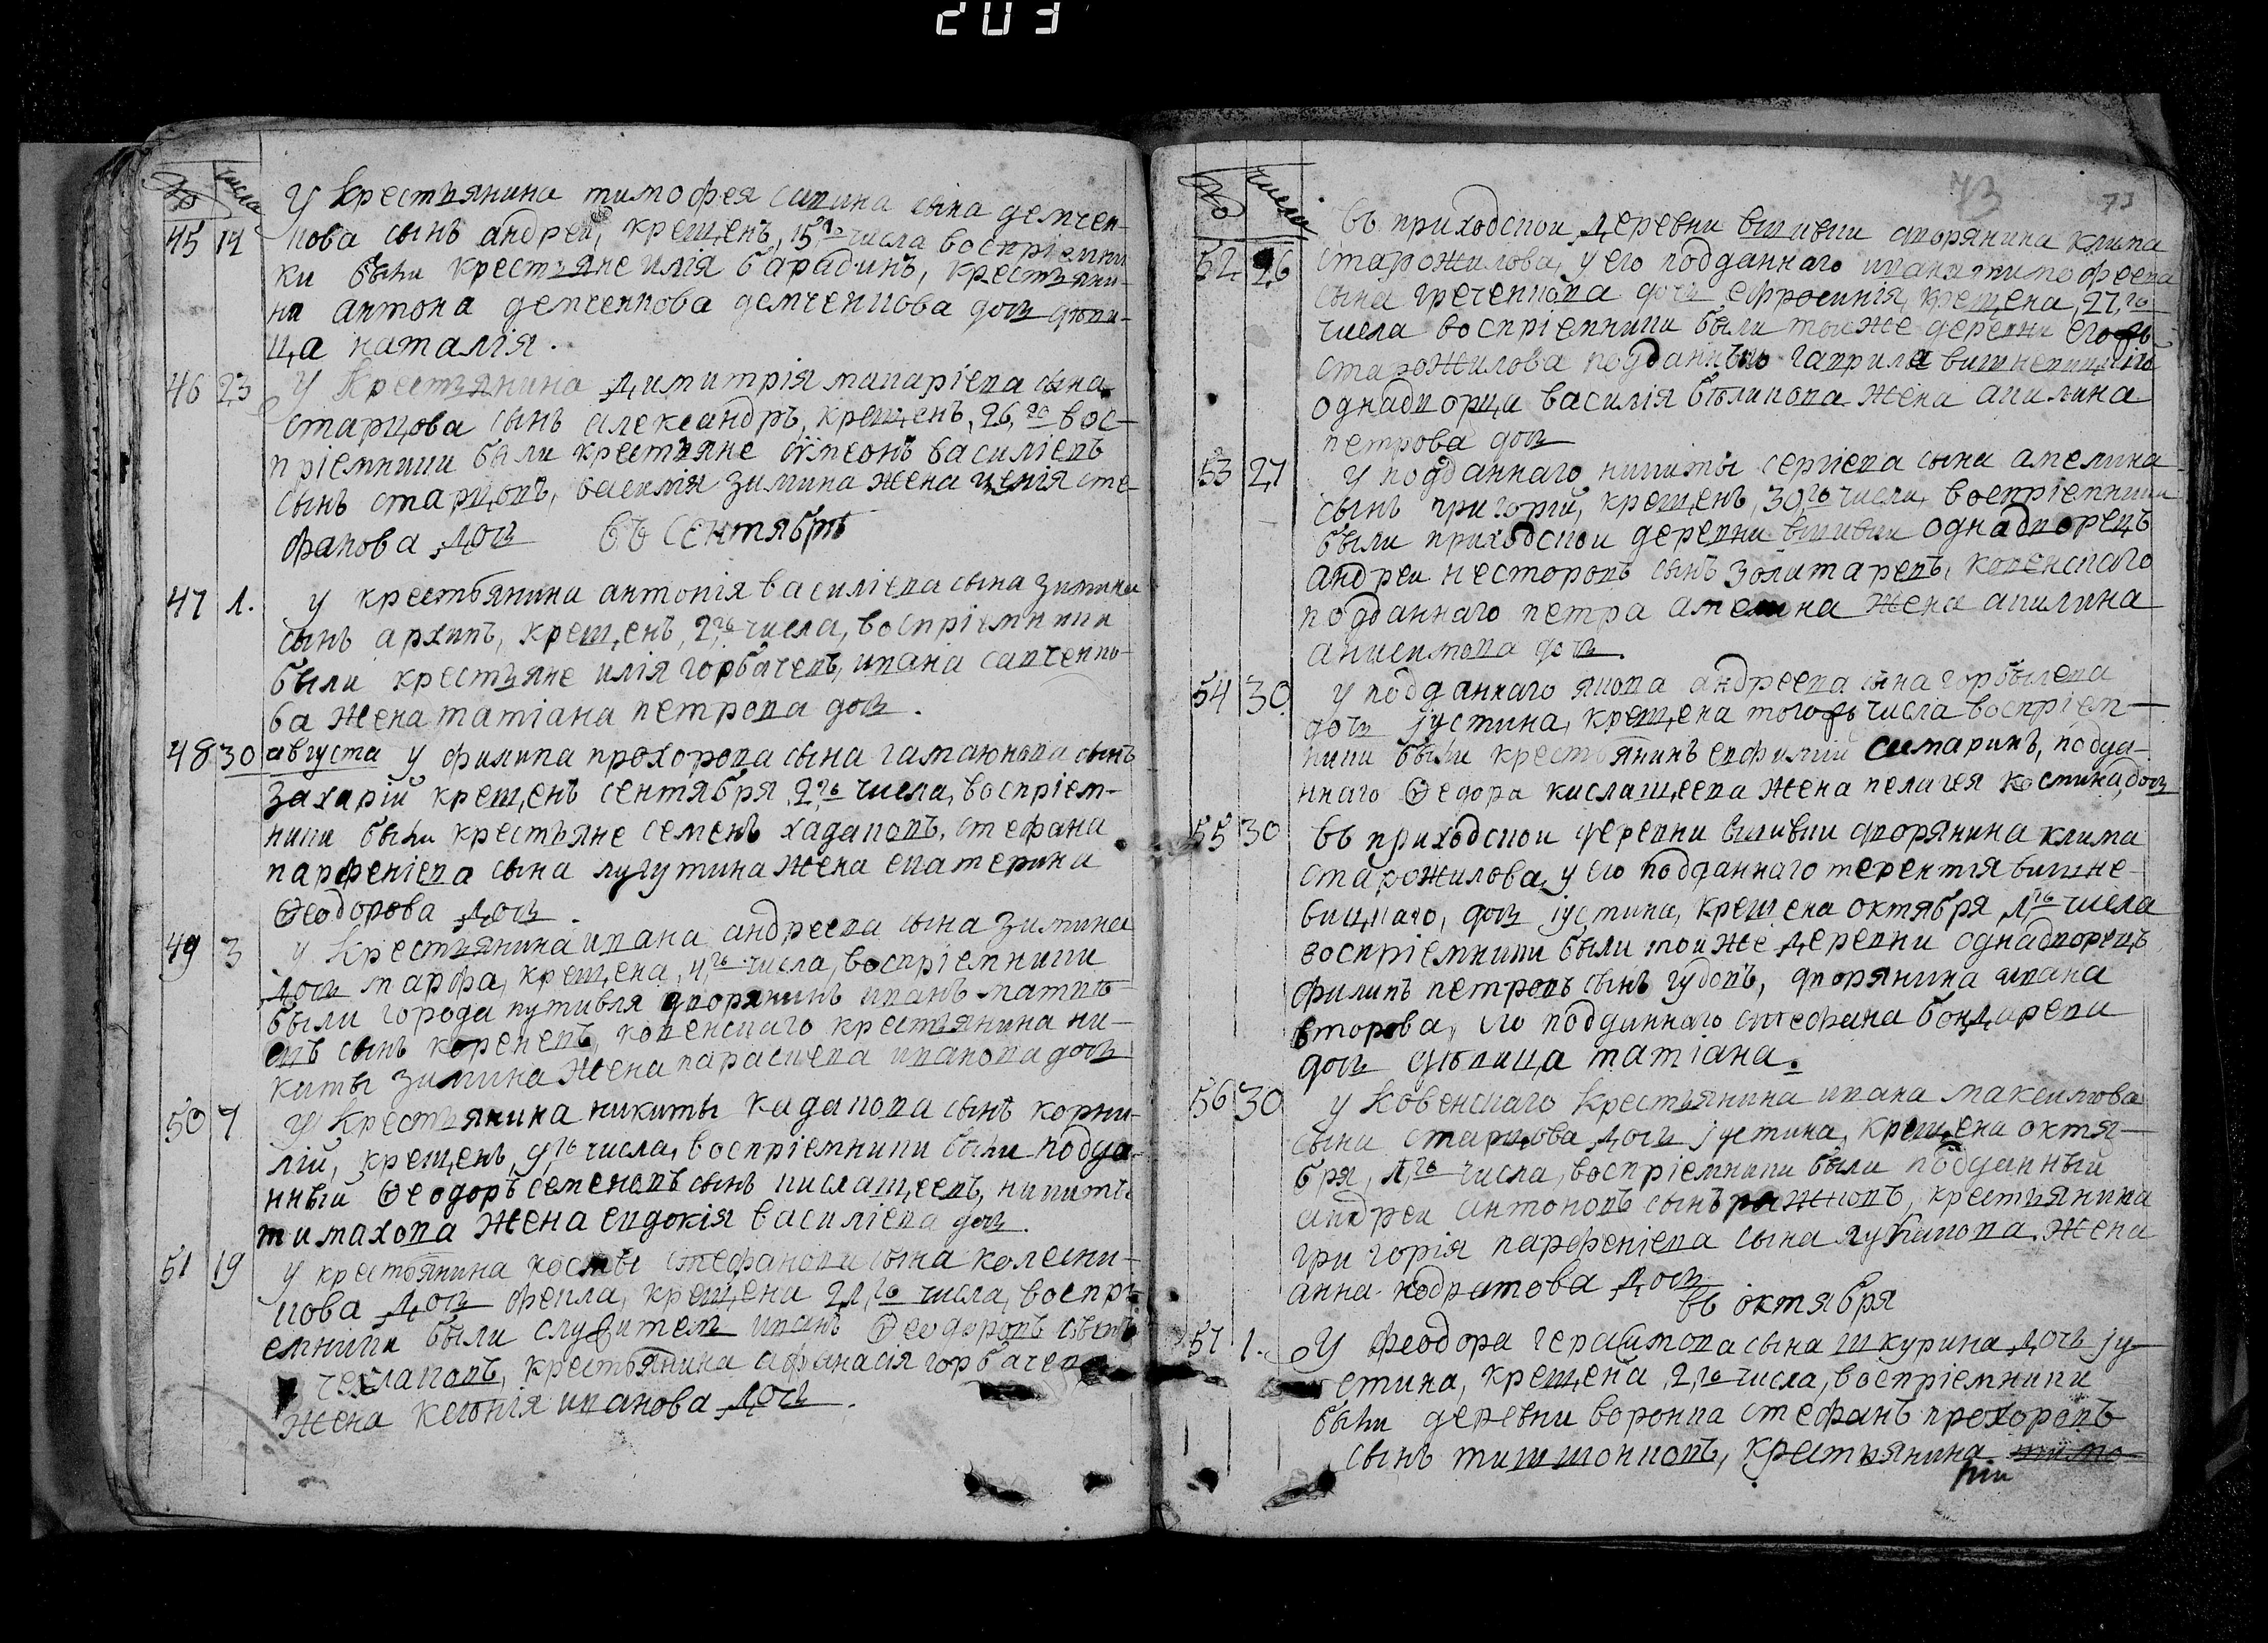 203
№ числа
У крестьянина тимофея савина сына демчен-
45 14 кова сынъ андрей, крещенъ, 15,го числа воспріемни
ки были крестьяне илія барабинъ, крестьяни-
на антона демченкова демченкова дочь дѣви-
ца наталія.
46 23 У Крестьянина димитрія макаріева сына
старцова сынъ александръ, крещенъ, 26,го вос-
пріемники были крестьяне симеонъ василіевъ
сынъ старцовъ, василія зимина жена сте-
фанова дочь въ сентябрѣ
47 1. У крестьянина антонія василіева сына зимина
сынъ архипъ, крещенъ, 2,го числа, воспріемники
были крестьяне илія горбачевъ, ивана савченко-
ва жена татіана петрова дочь.
48 30 августа у филипа прохорова сына гамаюнова сынъ
захарій крещенъ сентября 2,го числа, воспріем-
ники были крестьяне семенъ хадаковъ, стефана
парфеніева сына лугутина жена екатерина
Ѳеодорова дочь.
49 3 У Крестьянина ивана андреева сына зимина
дочь марфа, крещена, 4,го числа, воспріемники
были города путивля дворянинъ иванъ матвѣ
евъ сынъ кореневъ, ковенскаго крестьянина ни-
киты зимина жена парасковія иванова дочь
50 7 У Крестьянина никиты кадакова сынъ корни-
лій, крещенъ, 9,го числа, воспріемники были подда-
нный Ѳеодоръ семеновъ сынъ кислащеевъ, никиты
тимахова жена евдокія василіева дочь.
51 19 У крестьянина косты стефанова сына колесни-
кова дочь фекла, крещена 21,го числа, воспрі-
емники были служитель иванъ Ѳеодоровъ сынъ
чеклаковъ, крестьянина афанасія горбачева
жена ксенія иванова дочь.
73 73
№ числа
въ приходской деревни вшивки дворянина клима
52 26 старожилова, у его подданнаго ивана тимофеева
сына гречен­кова дочь ефросинія, крещена, 27,го
числа воспріемники были тойже деревни егожъ
старожилова подданный гаврила вишневицкій
однадворца василія бѣликова жена акилина
петрова дочь
53 27 У подданнаго никиты сергіева сына амелина
сынъ григорій, крещенъ, 30,го числа, воспріемники
были приходской деревни вшивки однадворецъ
андрей несторовъ сынъ золатаревъ, ковенскаго
подданнаго петра амелина жена акилина
анисимова дочь.
54 30 У подданнаго якова андреева сына горбылева
дочь іустина, крещена тогожъ числа воспріем-
ники были крестьянинъ евфимій симаринъ, подда-
ннаго Ѳедора кислащеева жена пелагея костина дочь
55 30 въ приходской деревни вшивки дворянина клима
старожилова, у его подданнаго терентія вишне-
вицкаго, дочь іустина, крещена октября 1,го числа
воспріемники были тойже деревни однадворецъ
филипъ петровъ сынъ губовъ, дворянина ивана
второва, его подданнаго стефана бондарева
дочь дѣвица татіана.
56 30 У Ковенскаго Крестьянина ивана максимова
сына старцова дочь іустина, крещена октя-
бря, 1,го числа, воспріемники были подданный
андрей антоновъ сынъ рыжковъ, крестьянина
григорія парфеніева сына лубакова жена
анна кодратова дочь
въ октября
57 1. У феодора герасимова сына шкурина дочь іу-
стина, крещена, 2,го числа, воспріемники
были деревни воронка стефанъ прохоровъ
сынъ тишшонковъ, крестьянина тимо